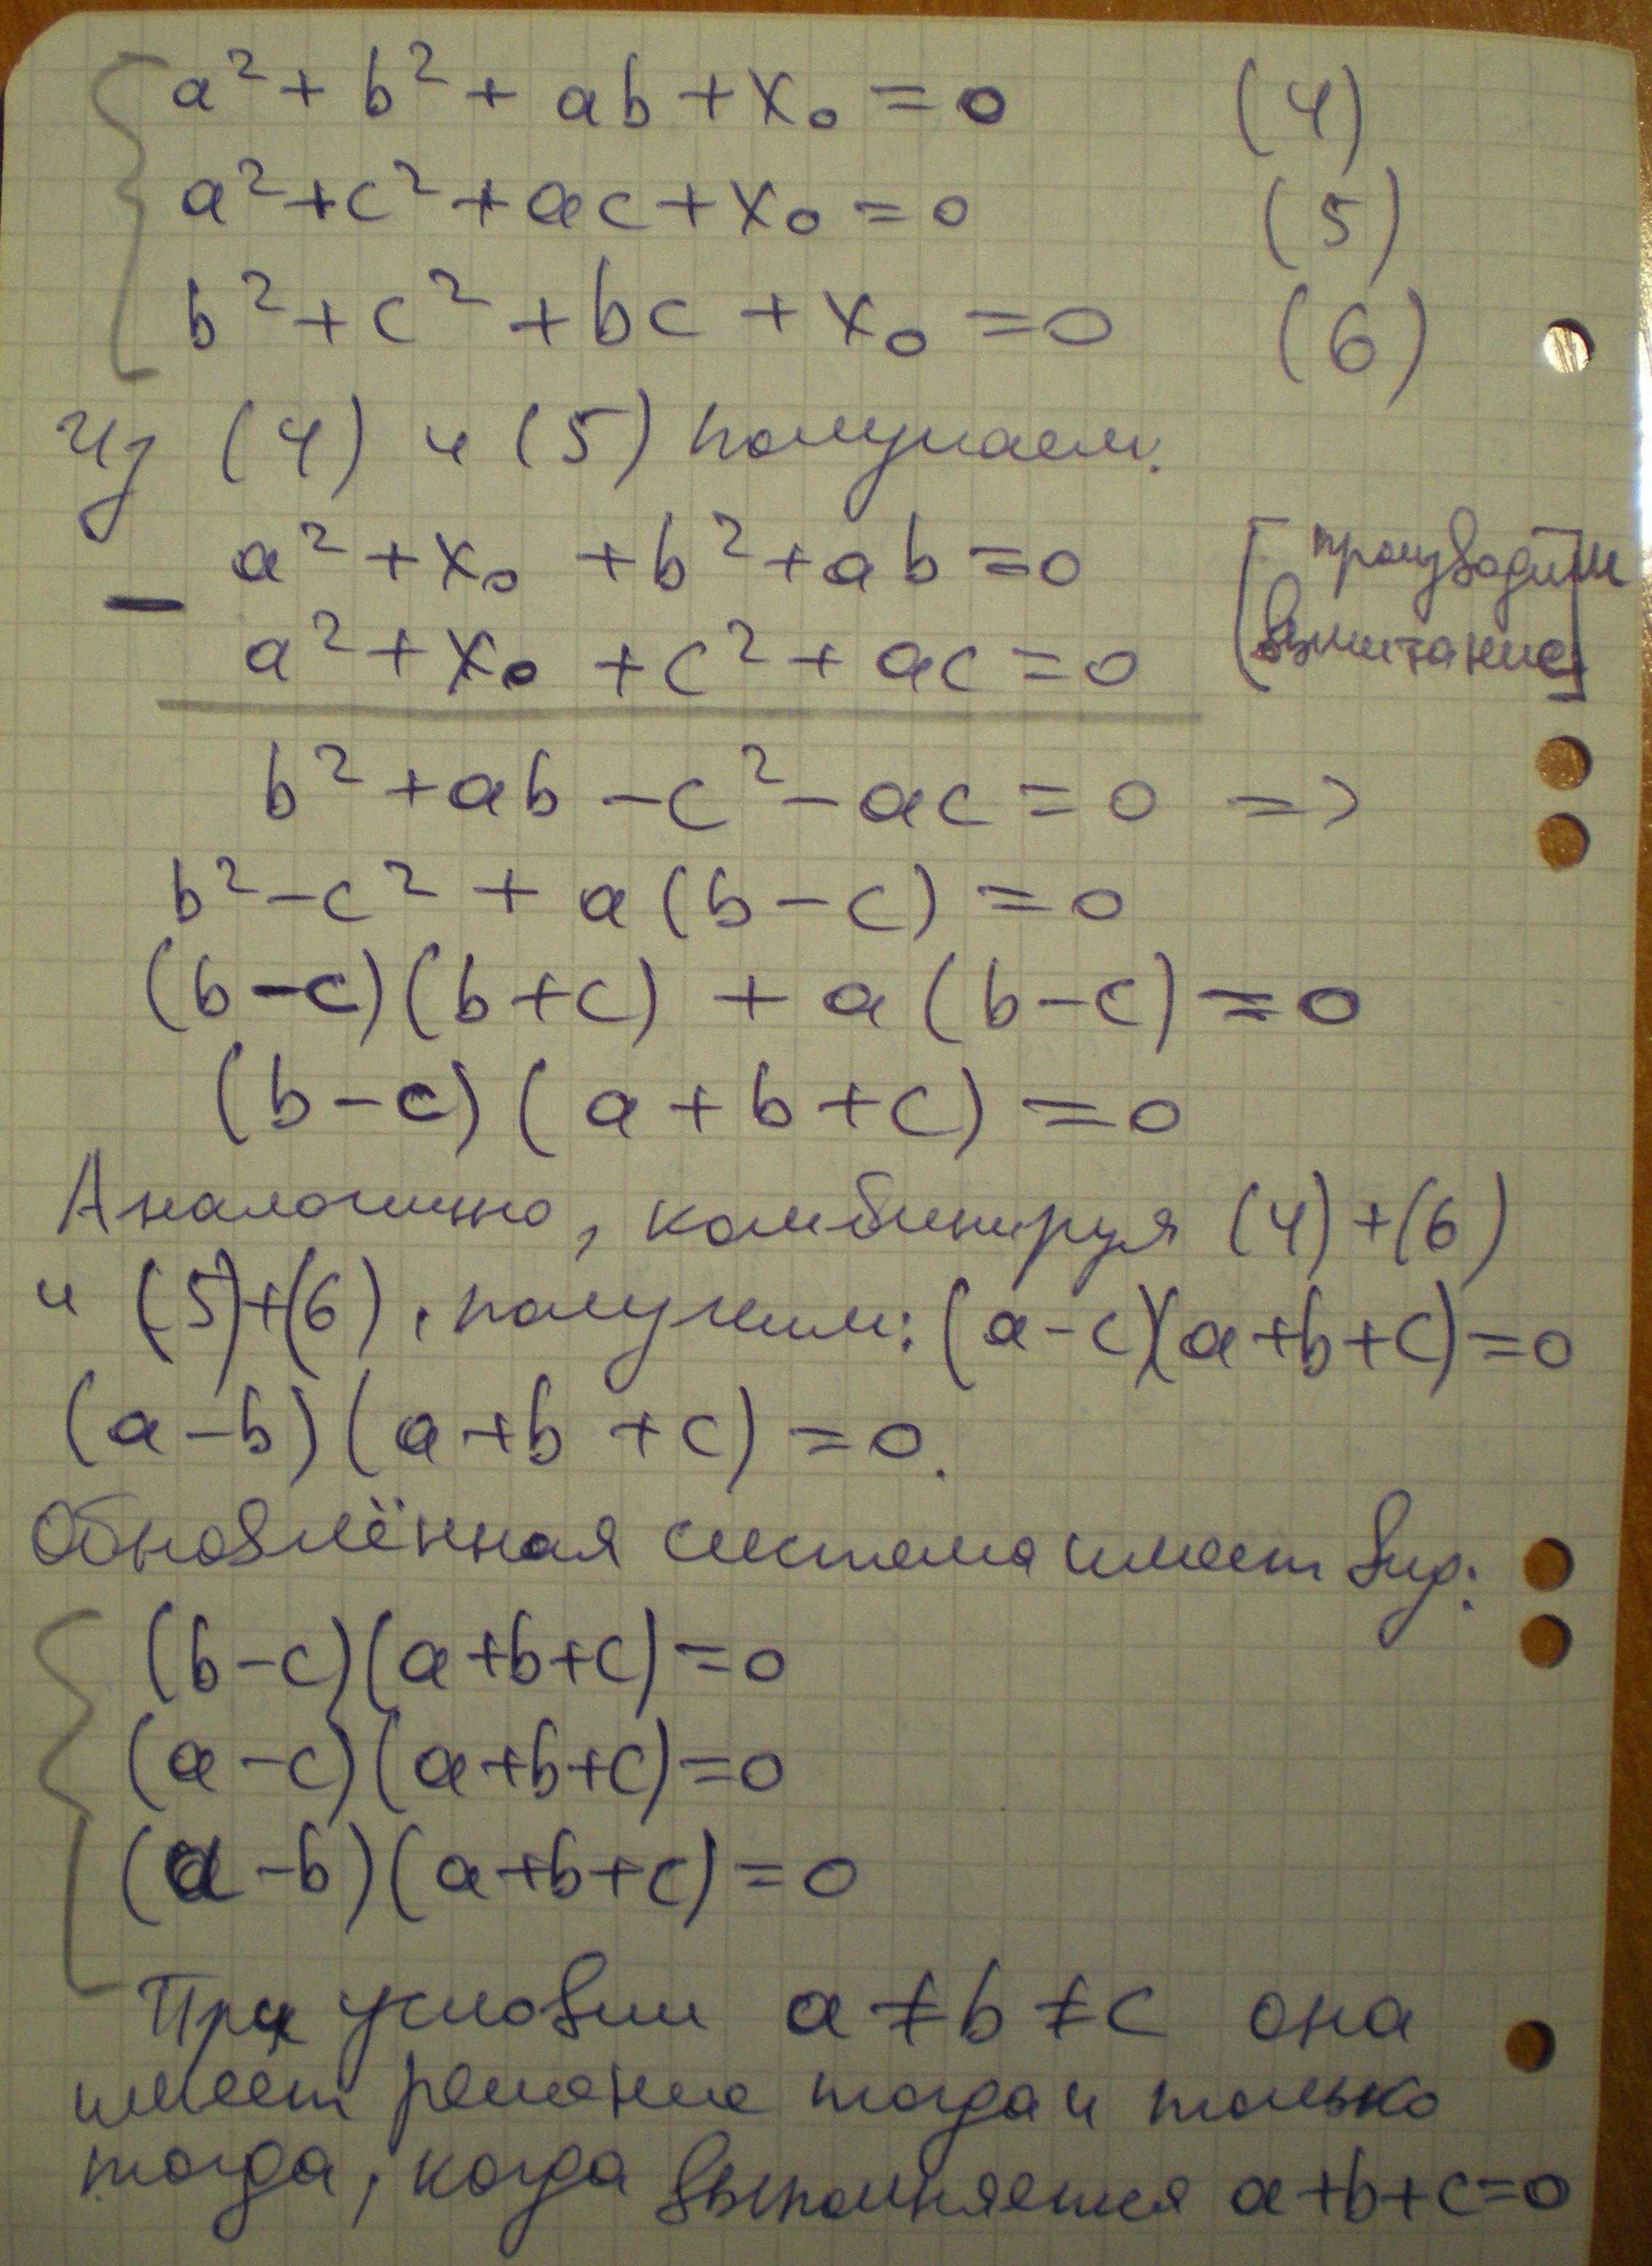 a² + b² + ab + x₀ = 0 (4)
a² + c² + ac + x₀ = 0 (5)
b² + c² + bc + x₀ = 0 (6)
Из (4) и (5) получаем:
a² + x₀ + b² + ab = 0 [производим
− a² + x₀ + c² + ac = 0 вычитание]
b² + ab − c² − ac = 0 =>
b² − c² + a(b − c) = 0
(b − c)(b + c) + a(b − c) = 0
(b − c)(a + b + c) = 0
Аналогично, комбинируя (4)+(6)
и (5)+(6), получим: (a − c)(a + b + c) = 0
(a − b)(a + b + c) = 0.
Обновлённая система имеет вид:
(b − c)(a + b + c) = 0
(a − c)(a + b + c) = 0
(a − b)(a + b + c) = 0
При условии a ≠ b ≠ c она
имеет решение тогда и только
тогда, когда выполняется a + b + c = 0